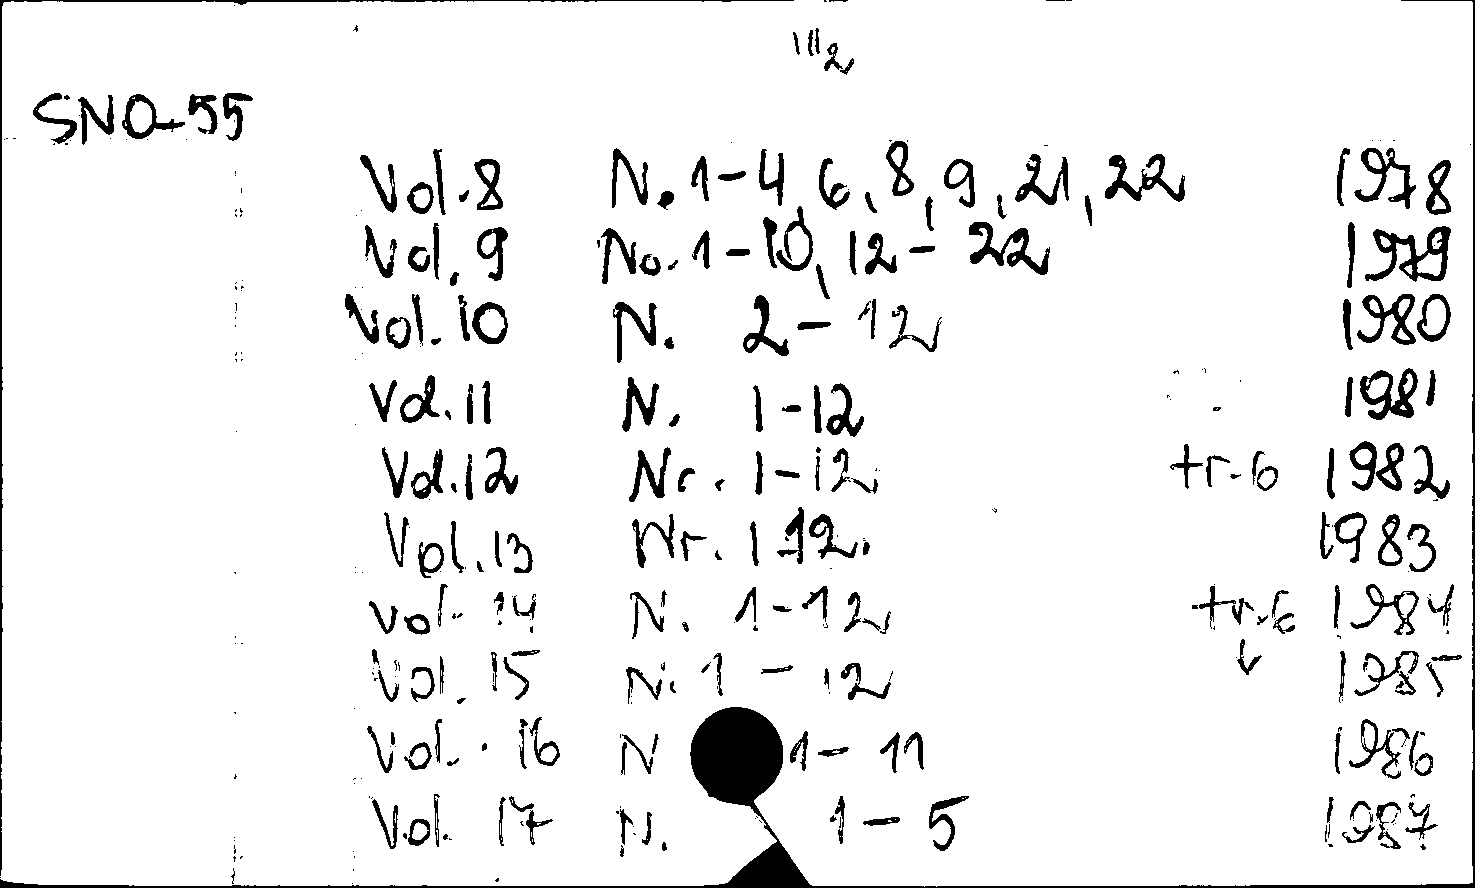 III2
SNO-55
Vol.8 N.1-4,6,8,9,21,22 1978
Vol.9 No.1-10,12-22 1979
Vol.10 N. 2-12 1980
Vol.11 N. 1-12 1981
Vol.12 Nr. 1-12 tr.6 1982
Vol.13 Nr. 1-12. 1983
Vol. 14 N. 1-12 tr.6 1984
Vol. 15 N. 1-12 ↓ 1985
Vol. 16 N 1-11 1986
Vol. 17 N. 1-5 1987